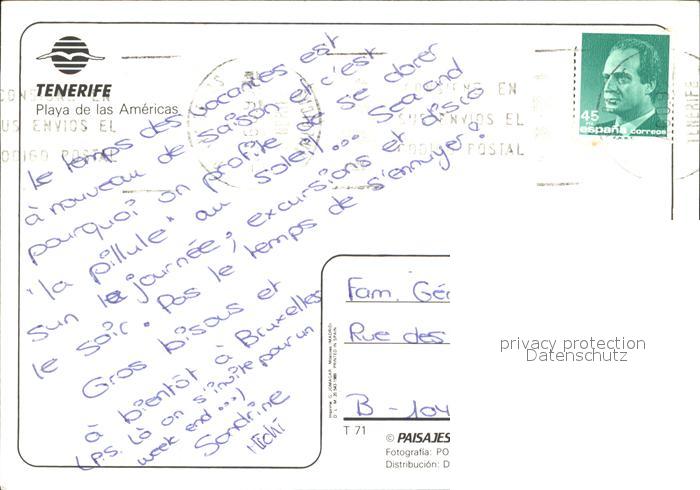 TENERIFE
Playa de las Américas
Le temps des vacances est
à nouveau de saison et c'est
pourquoi on profite de se dorer
"la pillule" au soleil... Sea and
sun la journée; excursions et disco
le soir. Pas le temps de s'ennuyer!
Gros bisous et
à bientôt à Bruxelles
(P.S. Là on s'invite pour un
week end...)
Sandrine
Michi
ENVIOS EL
POSTAL
EN
ENVIOS EL
POSTAL
45
PTA
españa correos
Fam. Gé
Rue des
B - 104
privacy protection
Datenschutz
T 71
© PAISAJES
Fotografía: PO
Distribución: D